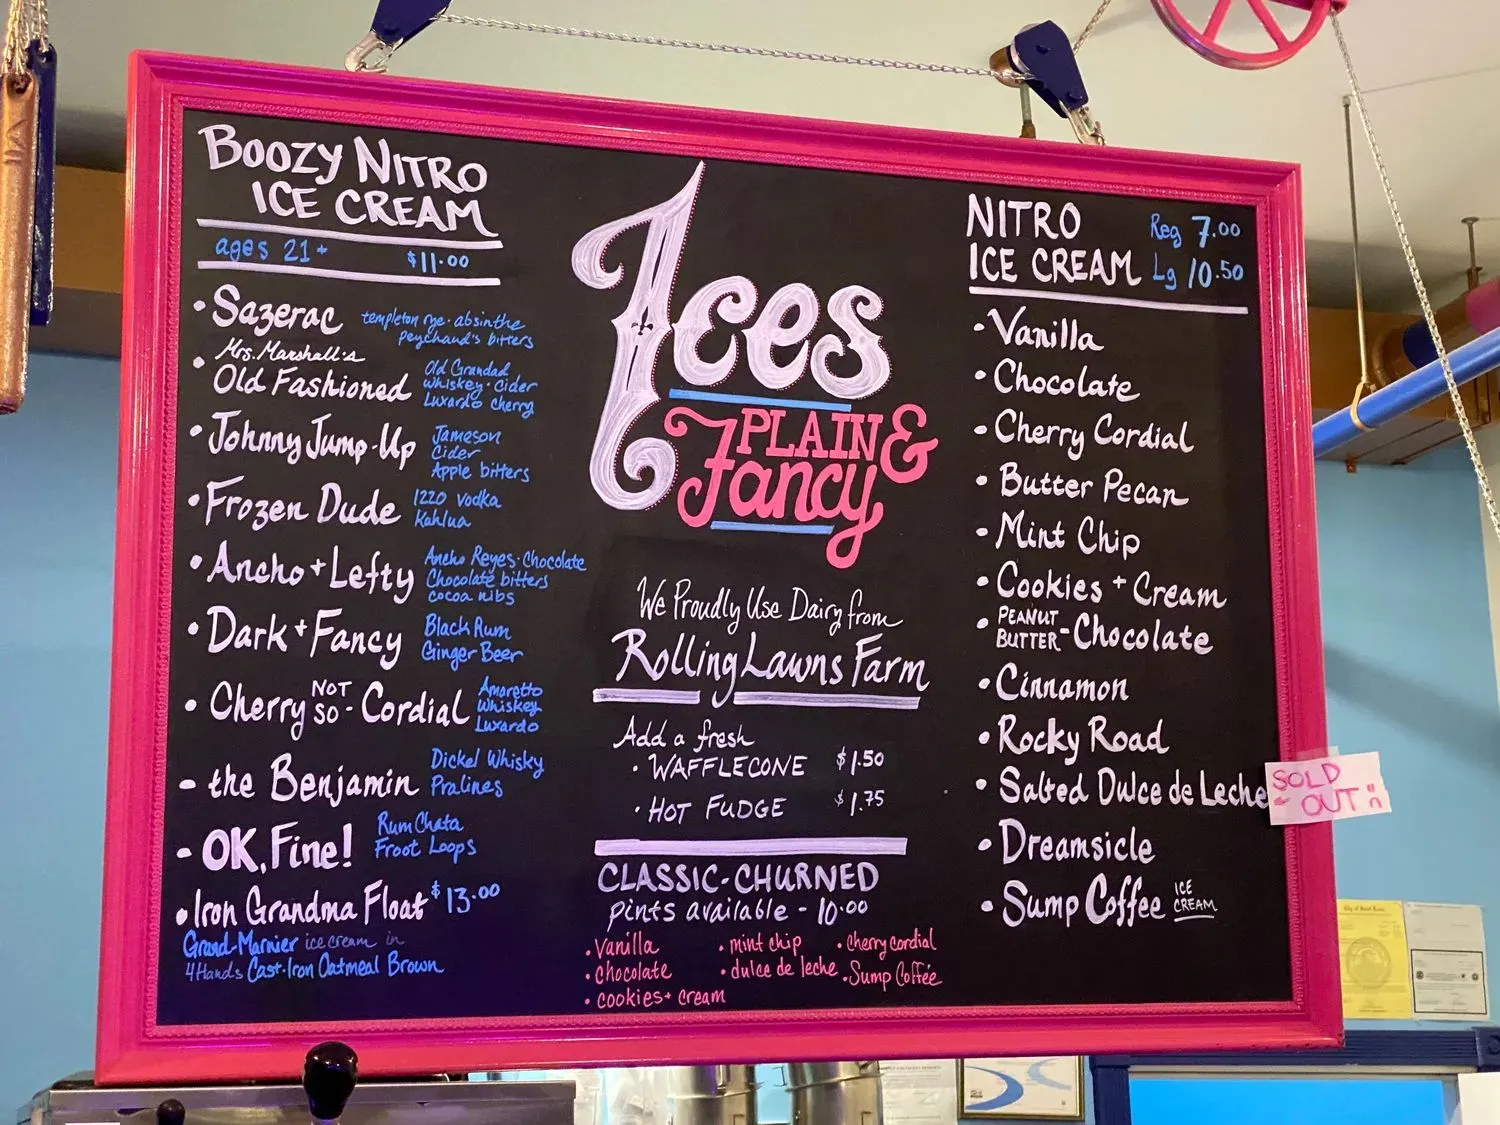 BOOZY NITRO
ICE CREAM
ages 21+ $11.00
• Sazerac templeton rye • absinthe
peychaud's bitters
• Mrs. Marshall's
Old Fashioned Old Grandad
whiskey • cider
Luxardo cherry
• Johnny Jump-Up Jameson
Cider
Apple bitters
• Frozen Dude 1220 vodka
Kahlua
• Ancho + Lefty Ancho Reyes • Chocolate
Chocolate bitters
cocoa nibs
• Dark + Fancy Black Rum
Ginger Beer
• Cherry NOT SO - Cordial Amaretto
Whiskey
Luxardo
- the Benjamin Dickel Whisky
Pralines
- OK, Fine! Rum Chata
Froot Loops
• Iron Grandma Float $13.00
Grand-Marnier ice cream in
4 Hands Cast-Iron Oatmeal Brown
Ices
PLAIN &
Fancy
We Proudly Use Dairy from
Rolling Lawns Farm
Add a fresh
• WAFFLECONE $1.50
• HOT FUDGE $1.75
CLASSIC-CHURNED
pints available - 10.00
• Vanilla • mint chip • cherry cordial
• chocolate • dulce de leche • Sump Coffee
• cookies + cream
NITRO Reg 7.00
ICE CREAM Lg 10.50
• Vanilla
• Chocolate
• Cherry Cordial
• Butter Pecan
• Mint Chip
• Cookies + Cream
• PEANUT
BUTTER - Chocolate
• Cinnamon
• Rocky Road
• Salted Dulce de Leche
SOLD
OUT
• Dreamsicle
• Sump Coffee ICE
CREAM